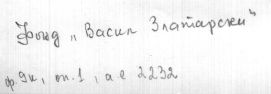 Фонд „Васил Златарски"
ф. 9к, оп. 1, а.е 2232